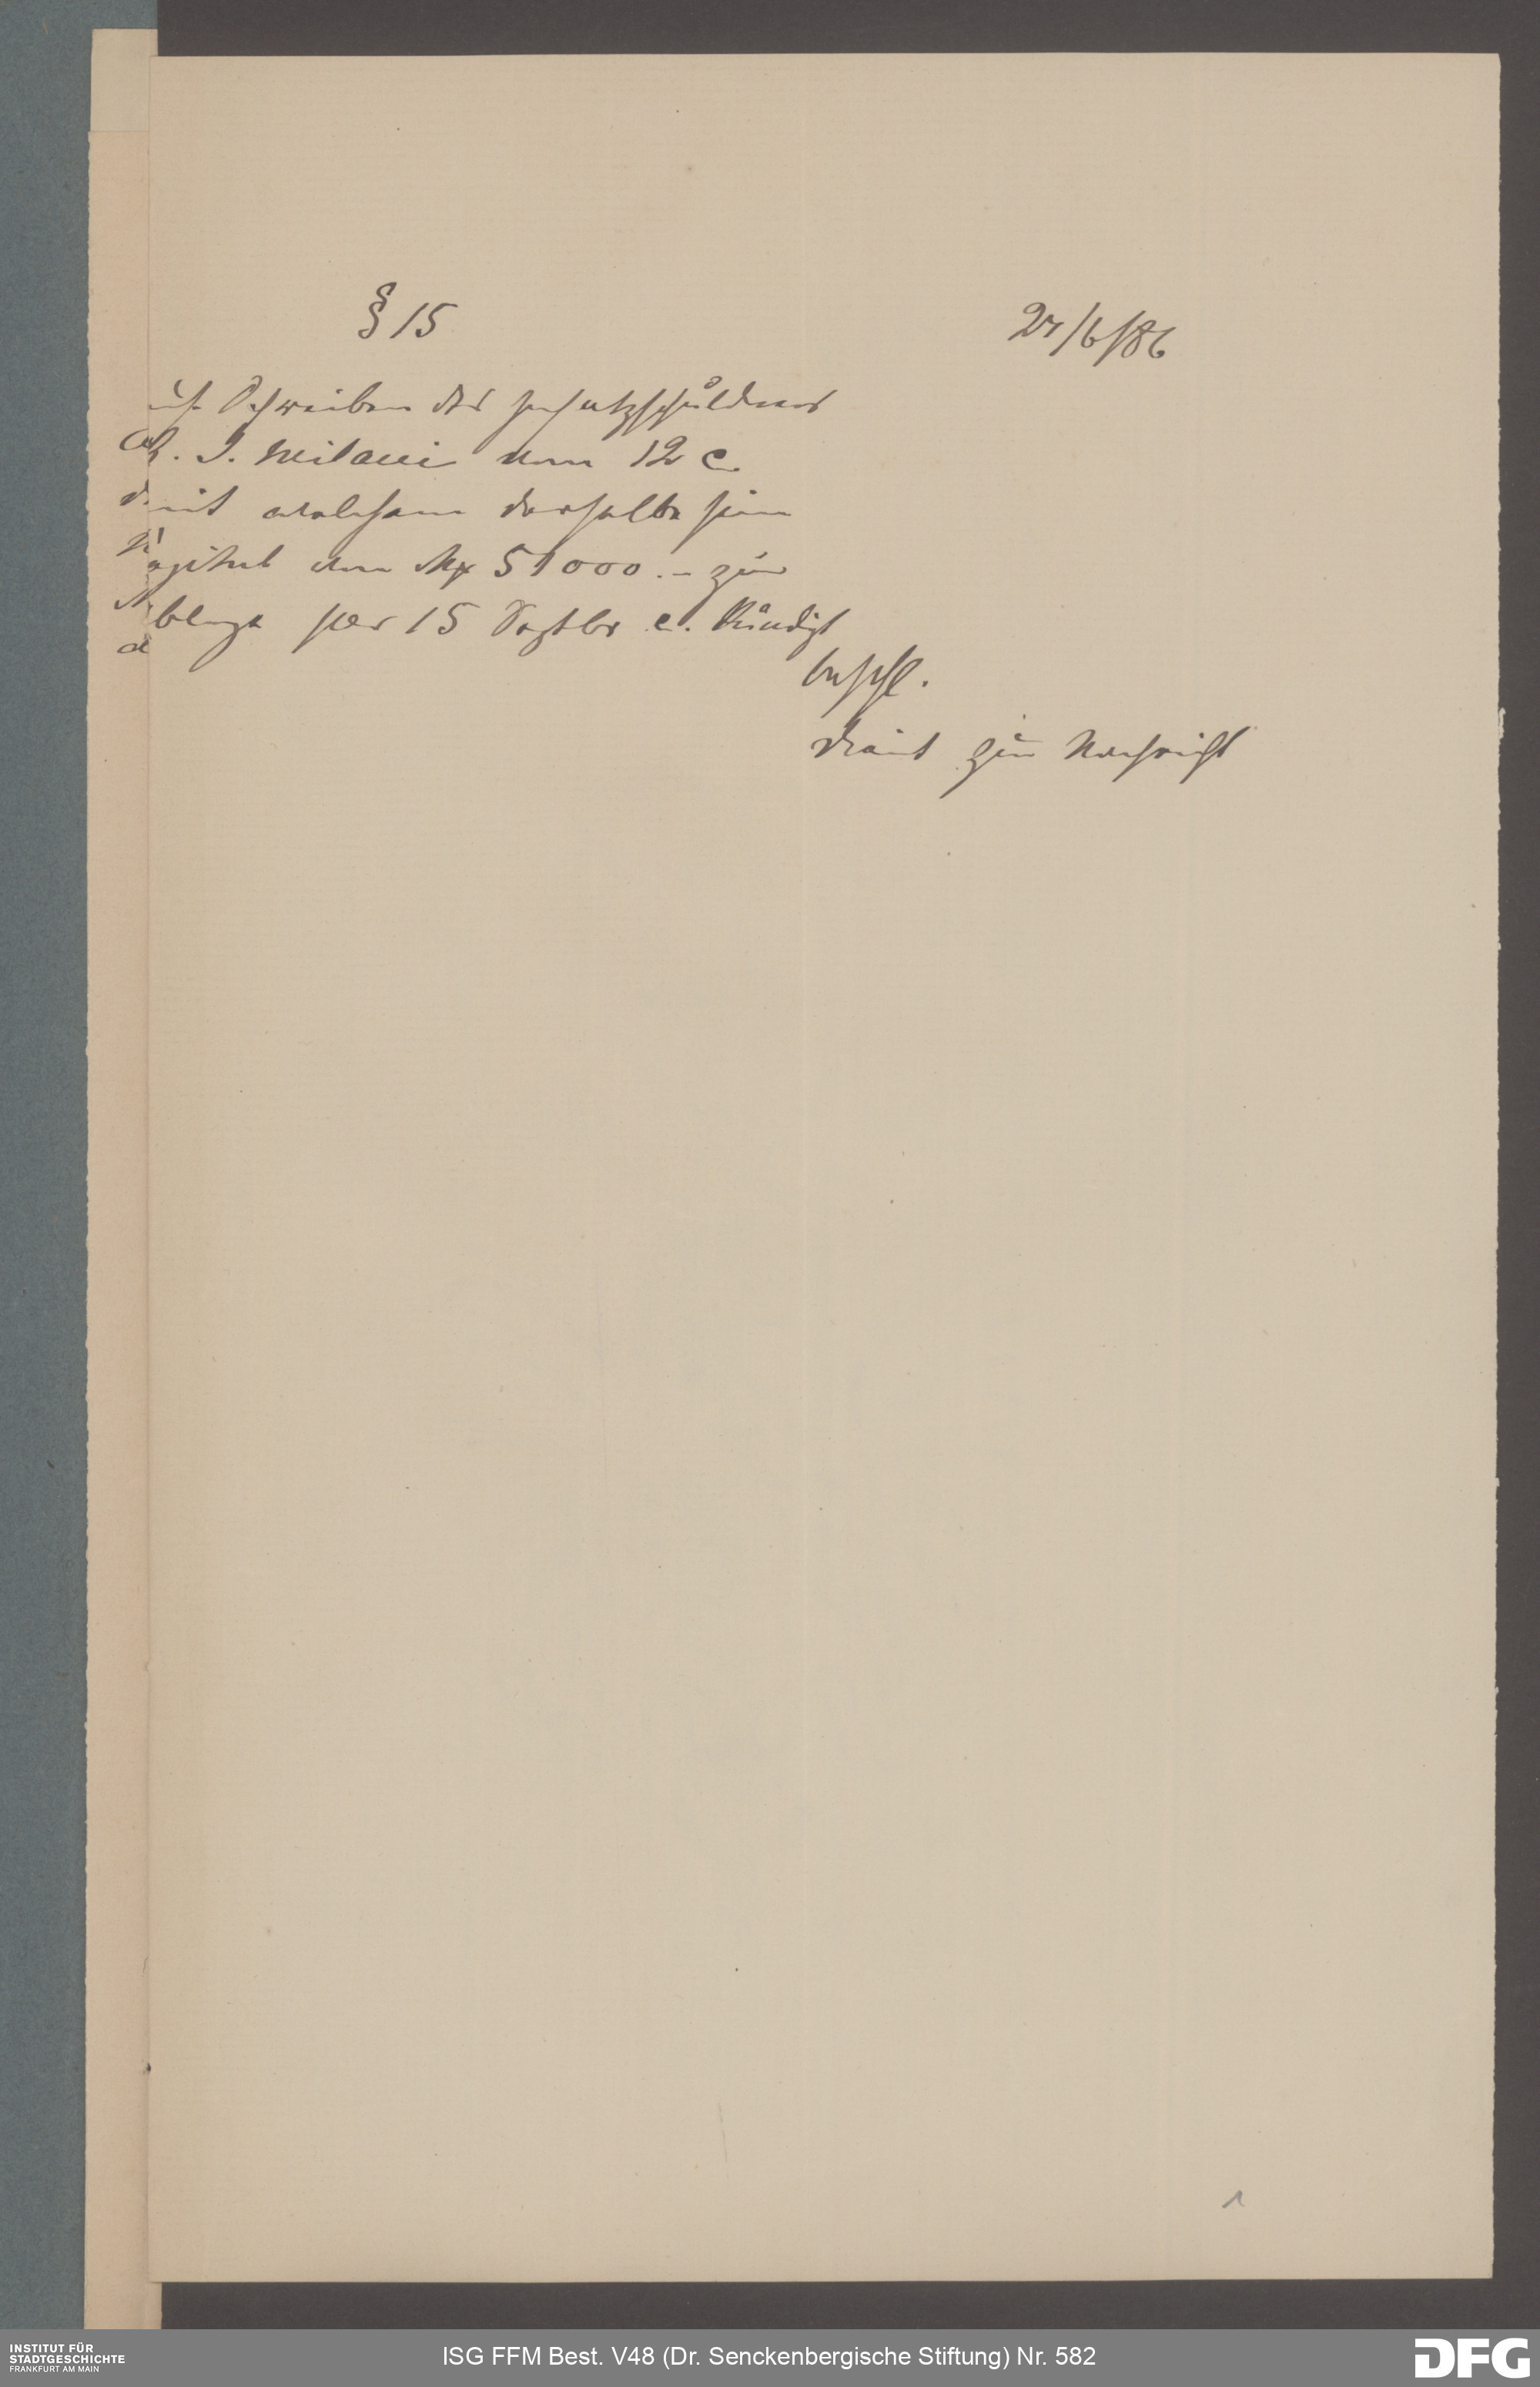 § 15
27/6/86
auf Schreiben des Insatzschuldners
Ch. J. Milani vom 12 c
mit welchem derselbe sein
Kapital von Mk 51000.– zur
Ablage per 15 Septbr c. kündigt
beschl.
dient zur Nachricht
1
INSTITUT FÜR
STADTGESCHICHTE
FRANKFURT AM MAIN
ISG FFM Best. V48 (Dr. Senckenbergische Stiftung) Nr. 582
DFG